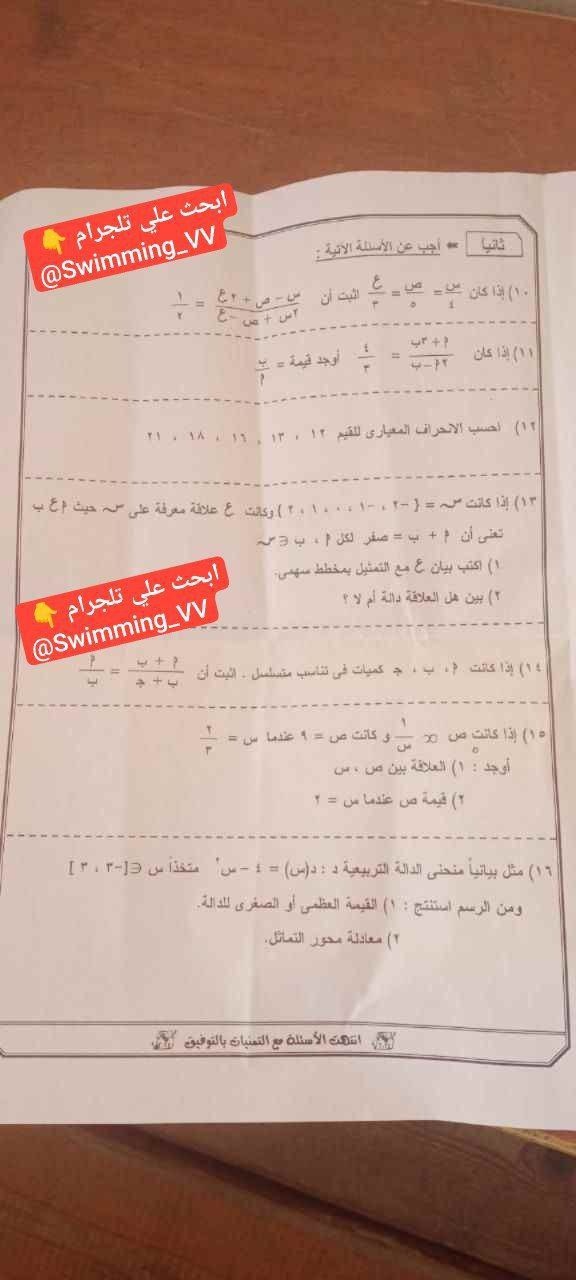 ابحث علي تلجرام 👇
@Swimming_VV
ثانياً أجب عن الأسئلة الآتية :
١٠) إذا كان س/٤ = ص/٥ = ع/٣ اثبت أن (س - ص + ٢ع)/(٢س + ص - ع) = ١/٢
١١) إذا كان (م + ٣ب)/(٢م - ب) = ٤/٣ أوجد قيمة = ب/م
١٢) احسب الانحراف المعيارى للقيم ١٢ ، ١٣ ، ١٦ ، ١٨ ، ٢١
١٣) إذا كانت س = { -٢ ، -١ ، ٠ ، ١ ، ٢ } وكانت ع علاقة معرفة على س حيث م ع ب
تعنى أن م + ب = صفر لكل م ، ب ∈ س
١) اكتب بيان ع مع التمثيل بمخطط سهمى.
٢) بين هل العلاقة دالة أم لا ؟
ابحث علي تلجرام 👇
@Swimming_VV
١٤) إذا كانت م ، ب ، ج كميات فى تناسب متسلسل . اثبت أن (م + ب)/(ب + ج) = م/ب
١٥) إذا كانت ص ∝ ١/س و كانت ص = ٩ عندما س = ٢/٣
أوجد : ١) العلاقة بين ص ، س
٢) قيمة ص عندما س = ٢
١٦) مثل بيانياً منحنى الدالة التربيعية د : د(س) = ٤ - س٢ متخذاً س ∈ [-٣ ، ٣]
ومن الرسم استنتج : ١) القيمة العظمى أو الصغرى للدالة.
٢) معادلة محور التماثل.
انتهت الأسئلة مع التمنيات بالتوفيق